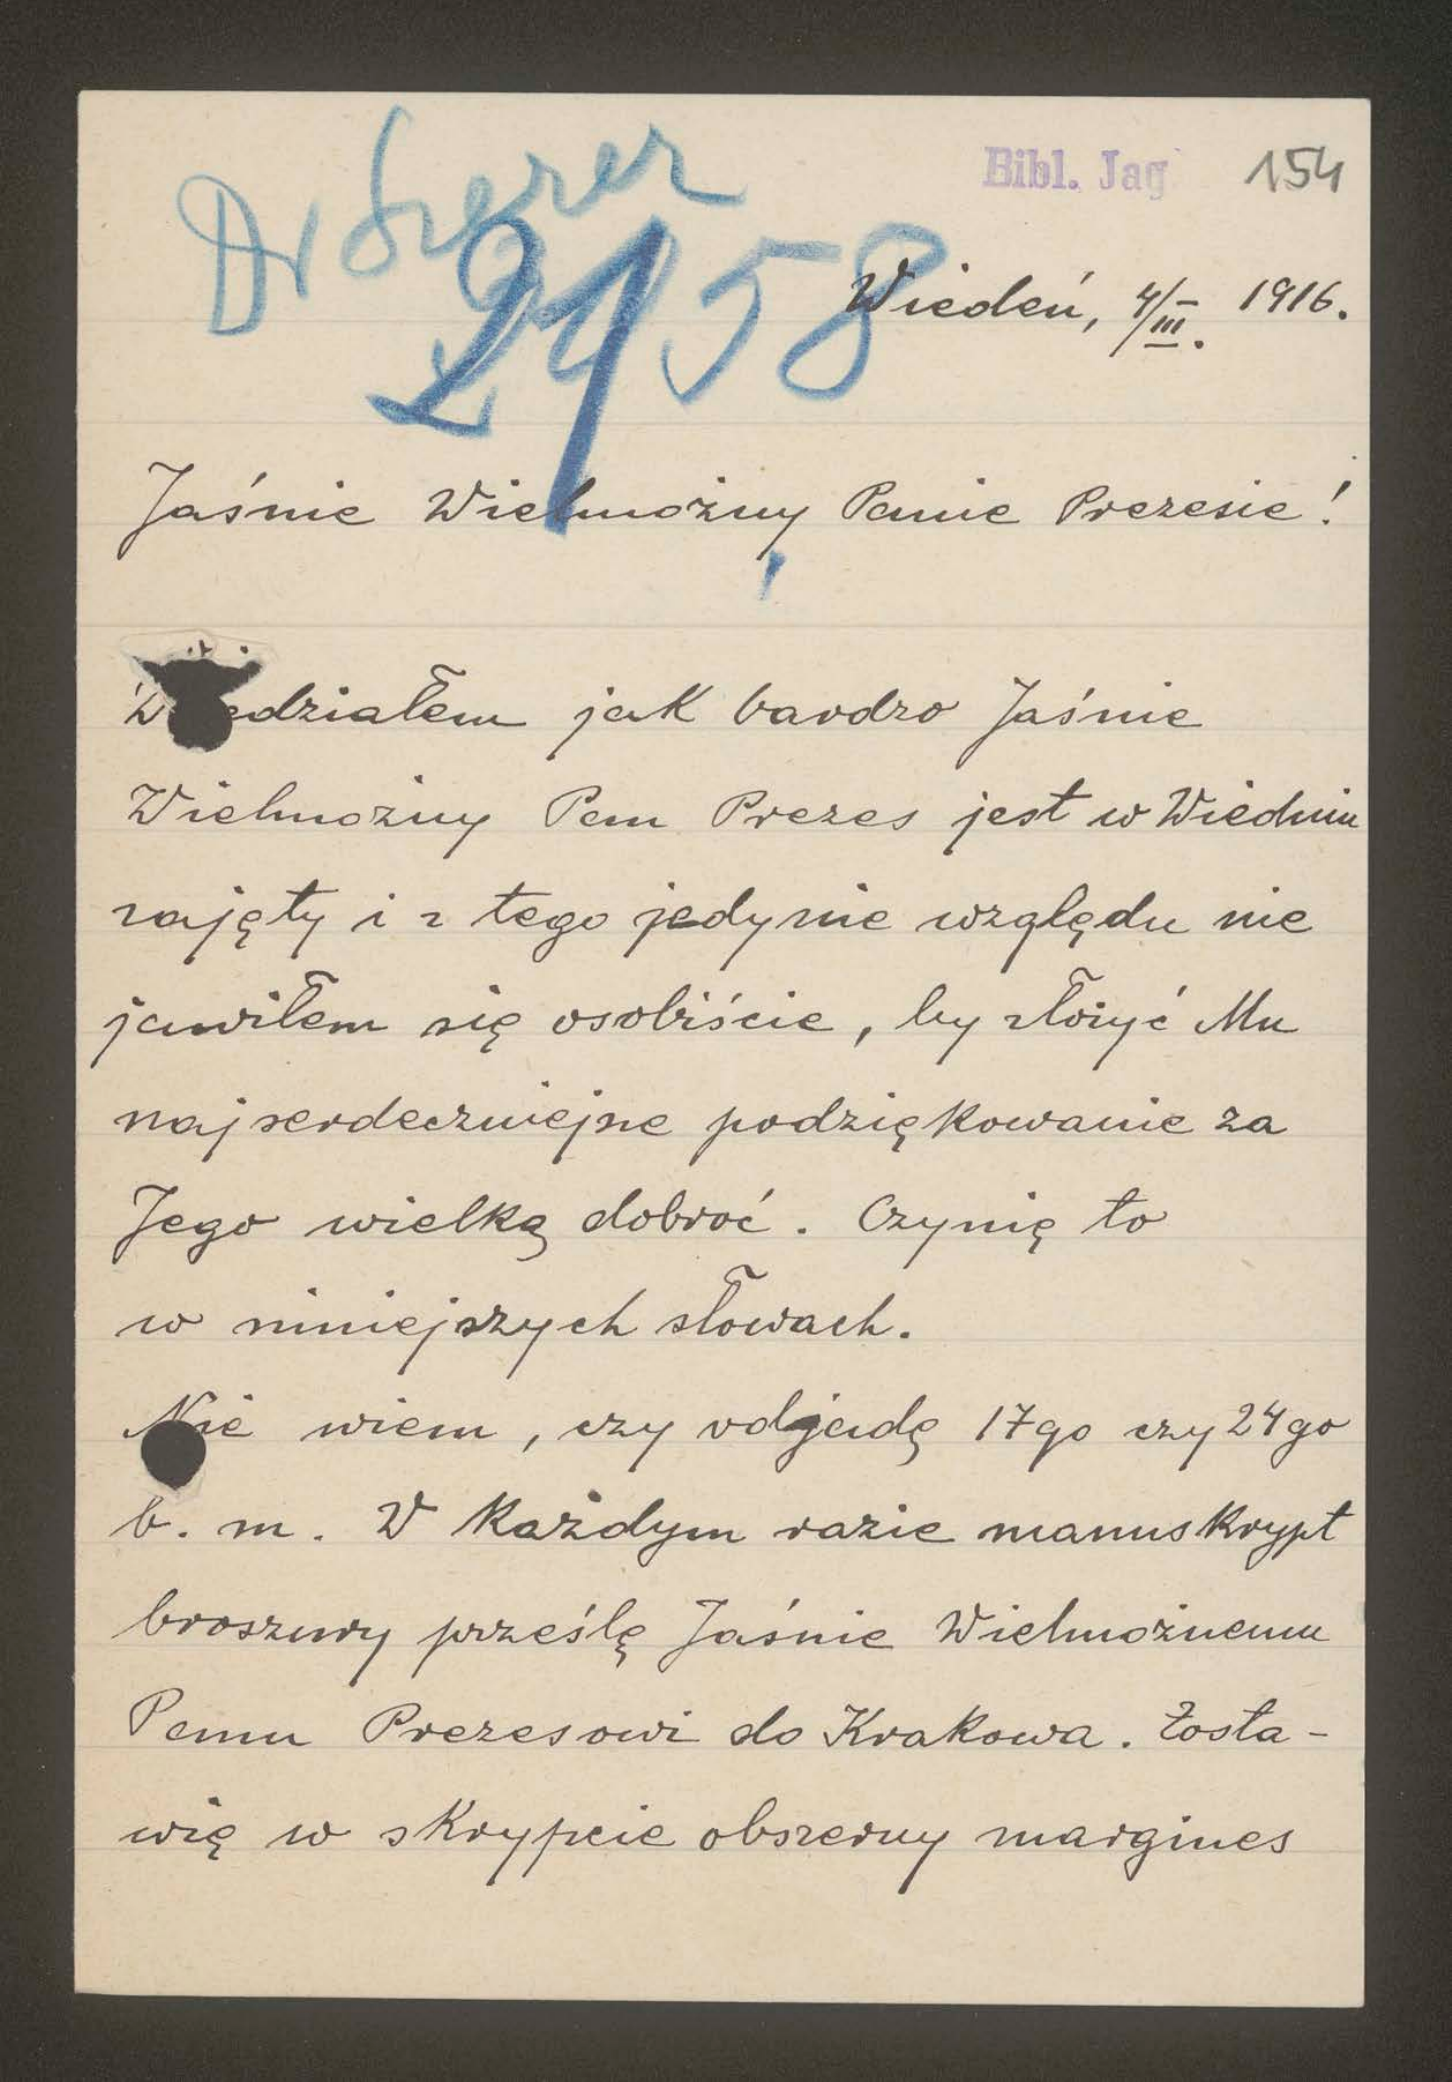 Bibl. Jag. 154
Dr
2958
Wiedeń, 4/III. 1916.
Jaśnie Wielmożny Panie Prezesie!
Wiedziałem jak bardzo Jaśnie
Wielmożny Pan Prezes jest w Wiedniu
zajęty i z tego jedynie względu nie
jawiłem się osobiście, by złożyć Mu
najserdeczniejsze podziękowanie za
Jego wielką dobroć. Czynię to
w niniejszych słowach.
Nie wiem, czy odjadę 17go czy 24go
b. m. W każdym razie manuskrypt
broszury prześlę Jaśnie Wielmożnemu
Panu Prezesowi do Krakowa. Zosta-
wię w skrypcie obszerny margines